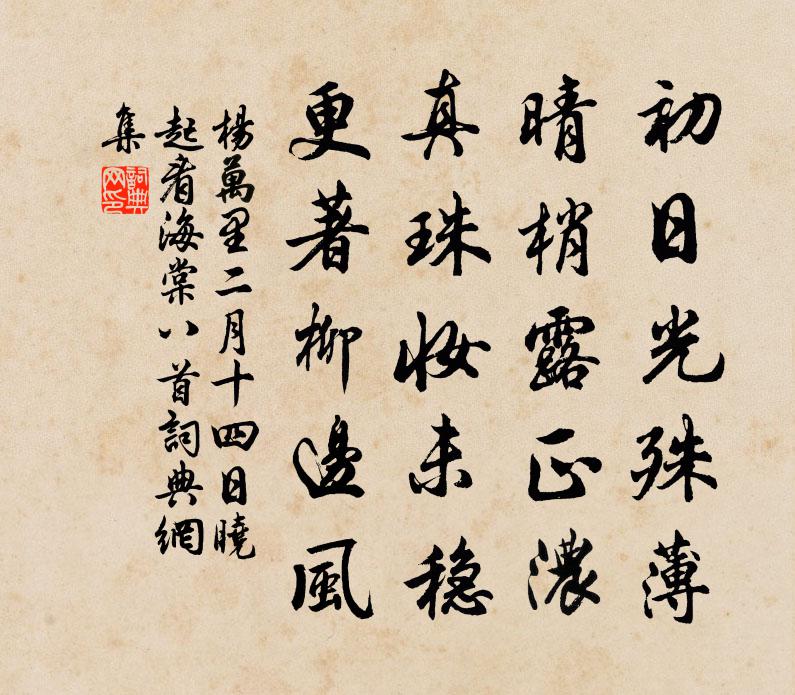 初日光殊薄
晴梢露正濃
真珠妝未穏
更著柳邊風
楊萬里二月十四日曉
起看海棠八首詞典網
集
詞典
网印